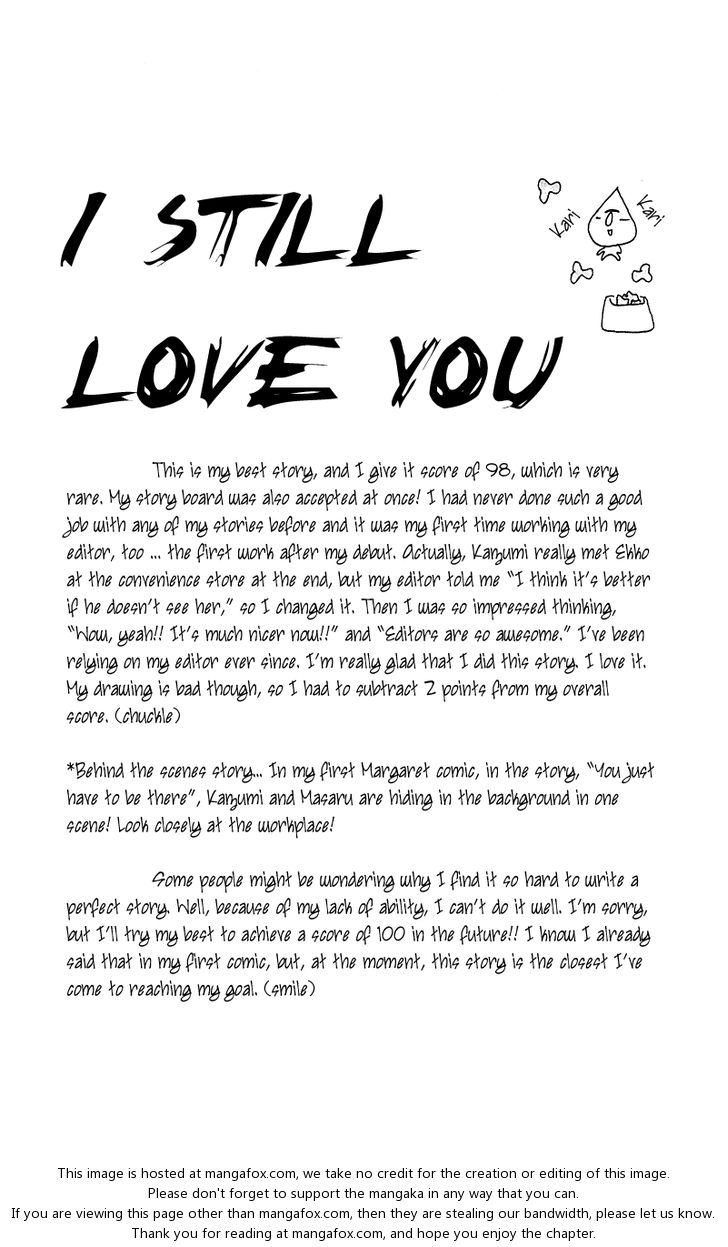 I STILL
Kari
Kari
LOVE YOU
This is my best story, and I give it score of 98, which is very
rare. My story board was also accepted at once! I had never done such a good
job with any of my stories before and it was my first time working with my
editor, too ... the first work after my debut. Actually, Kazumi really met Ekko
at the convenience store at the end, but my editor told me "I think it's better
if he doesn't see her," so I changed it. Then I was so impressed thinking,
"Wow, yeah!! It's much nicer now!!" and "Editors are so awesome." I've been
relying on my editor ever since. I'm really glad that I did this story. I love it.
My drawing is bad though, so I had to subtract 2 points from my overall
score. (chuckle)
*Behind the scenes story... In my first Margaret comic, in the story, "You just
have to be there", Kazumi and Masaru are hiding in the background in one
scene! Look closely at the workplace!
Some people might be wondering why I find it so hard to write a
perfect story. Well, because of my lack of ability, I can't do it well. I'm sorry,
but I'll try my best to achieve a score of 100 in the future!! I know I already
said that in my first comic, but, at the moment, this story is the closest I've
come to reaching my goal. (smile)
This image is hosted at mangafox.com, we take no credit for the creation or editing of this image.
Please don't forget to support the mangaka in any way that you can.
If you are viewing this page other than mangafox.com, then they are stealing our bandwidth, please let us know.
Thank you for reading at mangafox.com, and hope you enjoy the chapter.